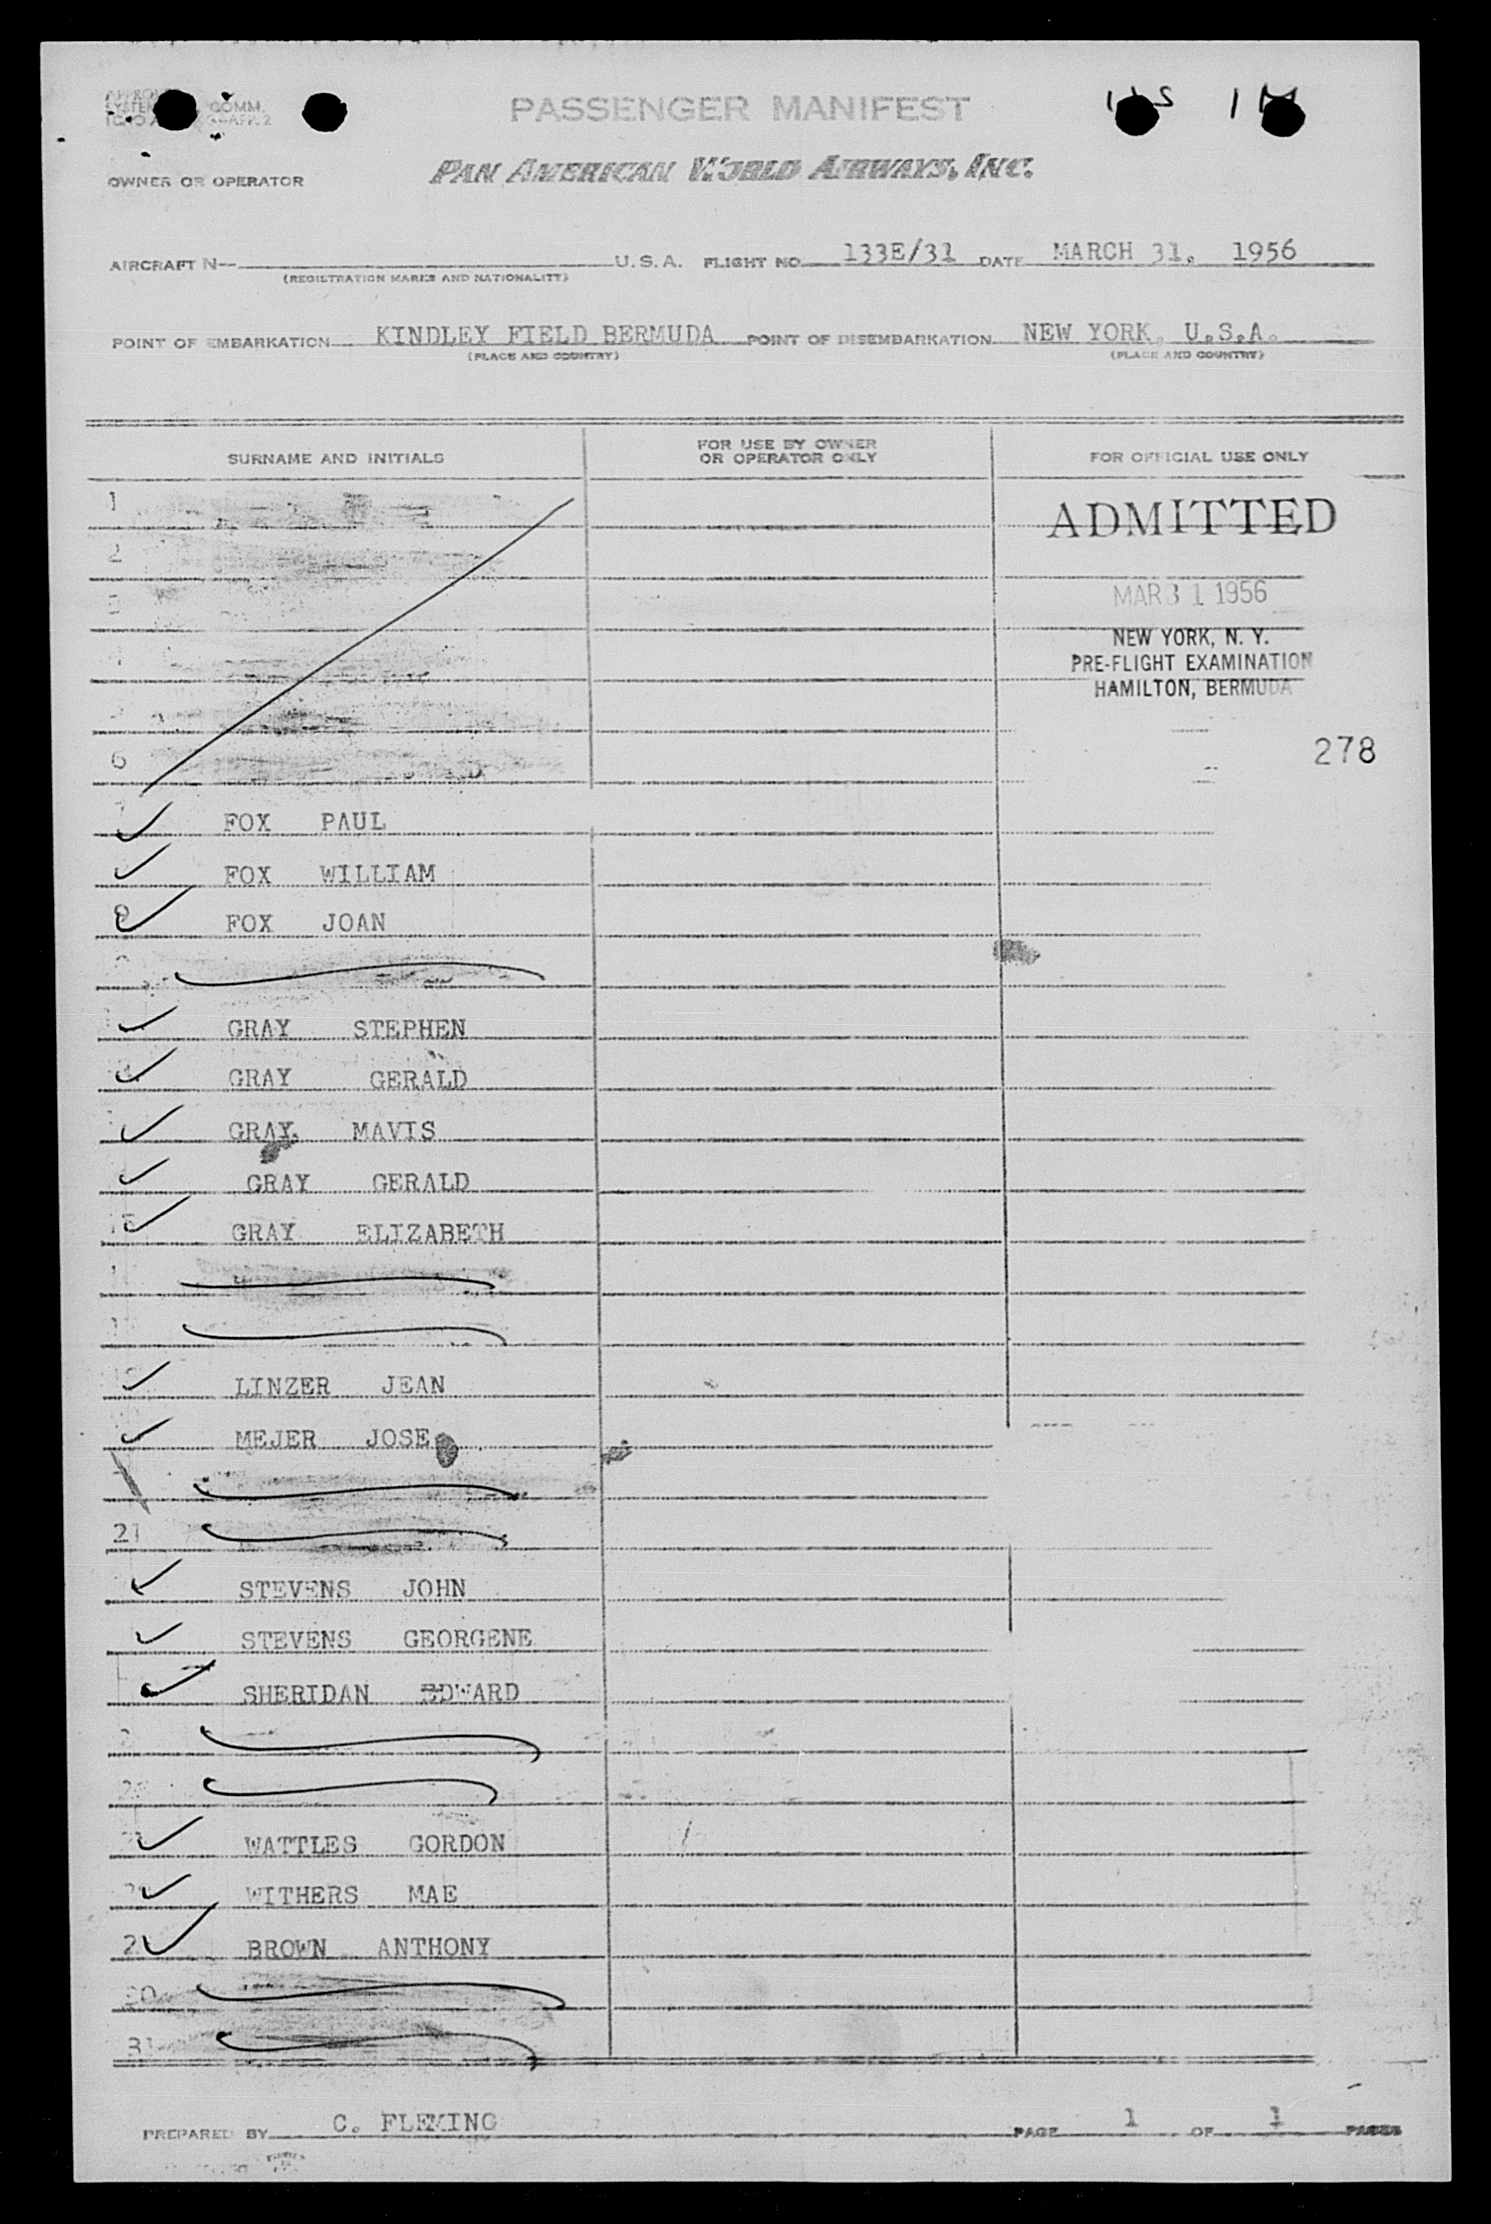 PASSENGER MANIFEST
COMM.
PAN AMERICAN WORLD AIRWAYS, INC.
OWNER OR OPERATOR
AIRCRAFT N— U.S.A. FLIGHT NO 133E/31 DATE MARCH 31, 1956
(REGISTRATION MARKS AND NATIONALITY)
POINT OF EMBARKATION KINDLEY FIELD BERMUDA POINT OF DISEMBARKATION NEW YORK, U.S.A.
(PLACE AND COUNTRY) (PLACE AND COUNTRY)
SURNAME AND INITIALS FOR USE BY OWNER OR OPERATOR ONLY FOR OFFICIAL USE ONLY
1
ADMITTED
2
MAR 31 1956
NEW YORK, N. Y.
PRE-FLIGHT EXAMINATION
HAMILTON, BERMUDA
6
278
FOX PAUL
FOX WILLIAM
9 FOX JOAN
GRAY STEPHEN
GRAY GERALD
GRAY. MAVIS
GRAY GERALD
15 GRAY ELIZABETH
LINZER JEAN
MEJER JOSE
21
STEVENS JOHN
STEVENS GEORGENE
SHERIDAN EDWARD
WATTLES GORDON
WITHERS MAE
BROWN ANTHONY
30
31
PREPARED BY C. FLEMING PAGE 1 OF 1 PAGES